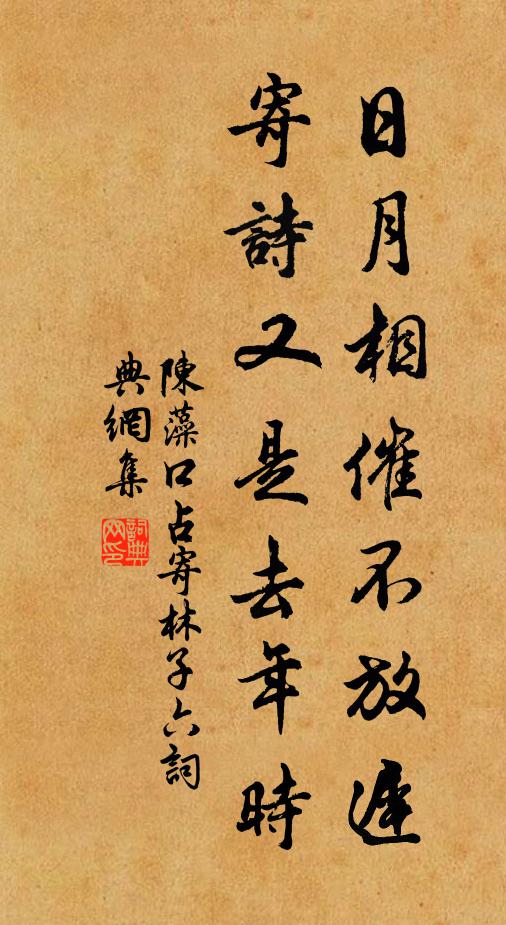 日月相催不放遲
寄詩又是去年時
陳藻口占寄林子六詞
典網集
詞典網印